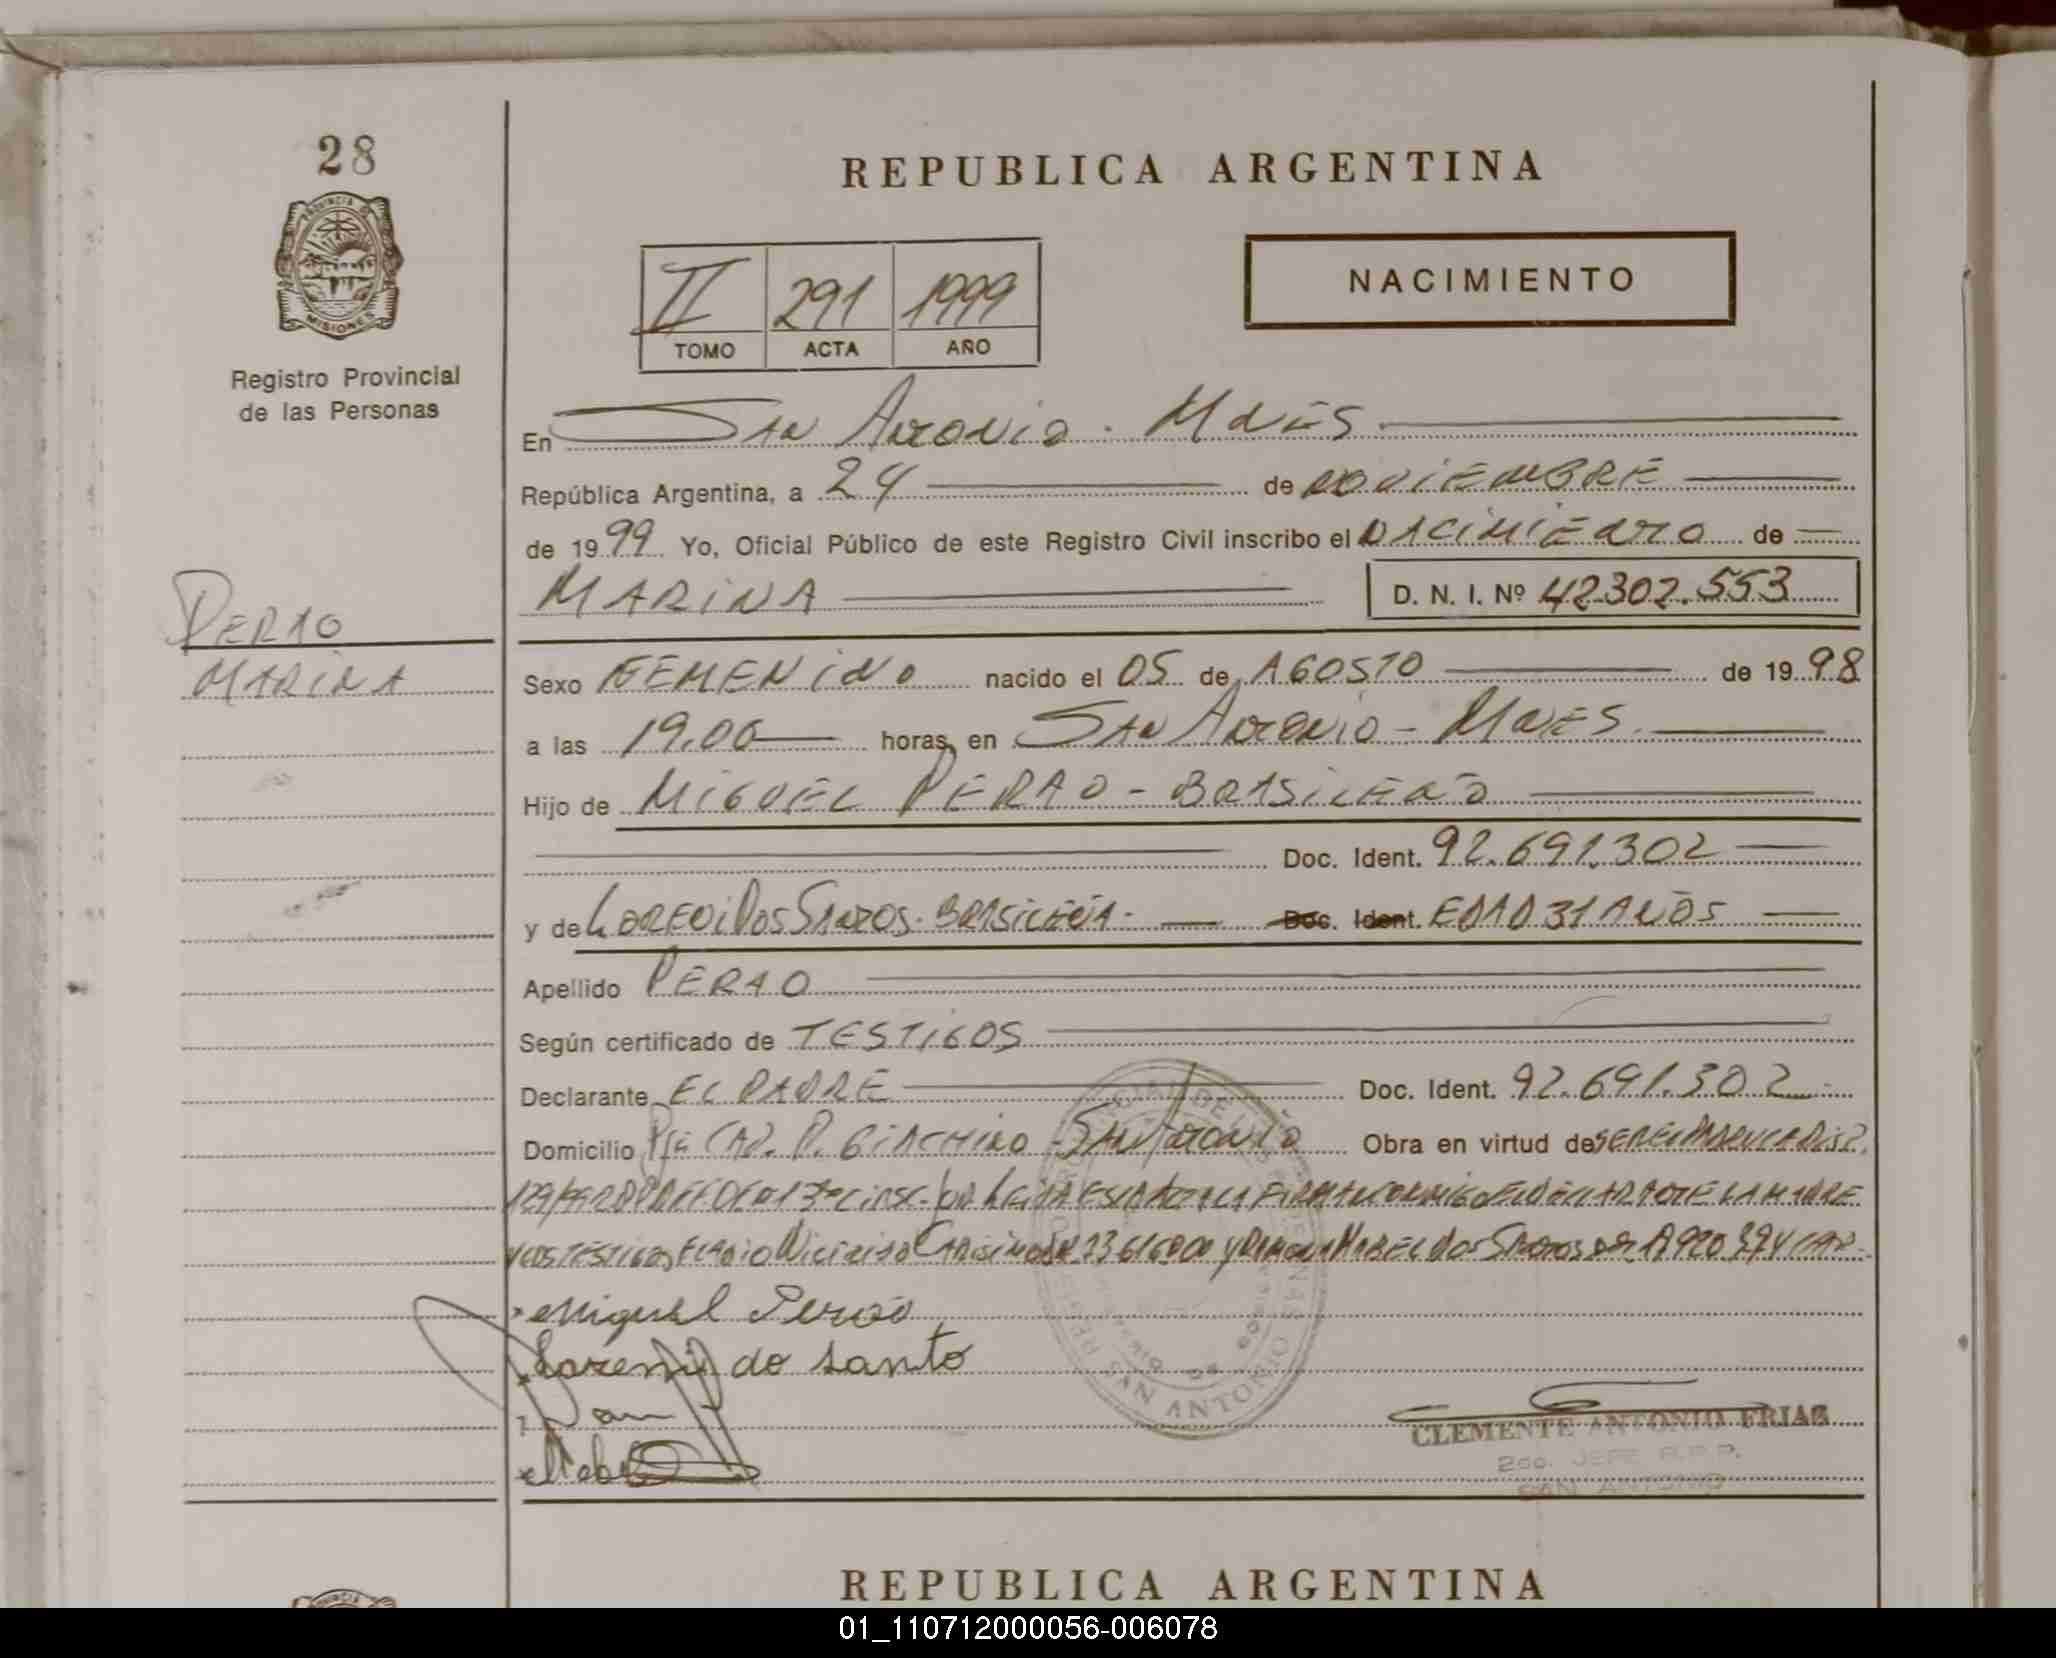 28
PROVINCIA DE
MISIONES
Registro Provincial
de las Personas
REPUBLICA ARGENTINA
NACIMIENTO
II 291 1999
TOMO ACTA AÑO
En San Antonio - Mnes
República Argentina, a 24 de noviembre
de 1999 Yo, Oficial Público de este Registro Civil inscribo el nacimiento de
Marina D. N. I. Nº 42302.553
Perao
Marina
Sexo Femenino nacido el 05 de Agosto de 1998
a las 19.00 horas, en San Antonio - Mnes.
Hijo de Miguel Perao - Brasileño
Doc. Ident. 92.691.302
y de Loreni Dos Santos - Brasileña - Doc. Ident. Edad 31 años
Apellido Perao
Según certificado de Testigos
Declarante El Padre Doc. Ident. 92.691.302
Domicilio Pje Cap. P. Giachino - San Antonio Obra en virtud de
la madre
y los testigos 23616000 y Ramona Mabel Dos Santos
Miguel Perao
Loreni do santo
SAN ANTONIO
CLEMENTE ANTONIO FRIAS
2do. JEFE R.P.P.
SAN ANTONIO
REPUBLICA ARGENTINA
01_110712000056-006078